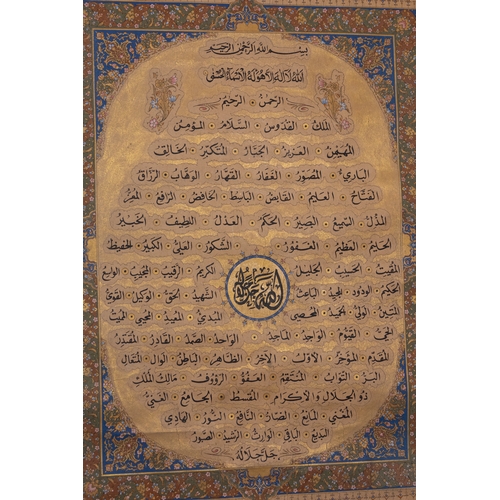 بسم الله الرحمن الرحيم
الله لا اله الا هو له الاسماء الحسنى
الرحمن الرحيم
الملك القدوس السلام المؤمن
المهيمن العزيز الجبار المتكبر الخالق
البارىء المصور الغفار القهار الوهاب الرزاق
الفتاح العليم القابض الباسط الخافض الرافع المعز
المذل السميع البصير الحكم العدل اللطيف الخبير
الحليم العظيم الغفور الشكور العلي الكبير الحفيظ
المقيت الحسيب الجليل الكريم الرقيب المجيب الواسع
الله جل جلاله
الحكيم الودود المجيد الباعث الشهيد الحق الوكيل القوى
المتين الولى الحميد المحصى المبدئ المعيد المحيي المميت
الحي القيوم الواجد الماجد الواحد الصمد القادر المقتدر
المقدم المؤخر الأول الآخر الظاهر الباطن الوال المتعال
البر التواب المنتقم العفو الرؤوف مالك الملك
ذو الجلال والاكرام المقسط الجامع الغني
المغني المانع الضار النافع النور الهادي
البديع الباقي الوارث الرشيد الصبور
جل جلاله